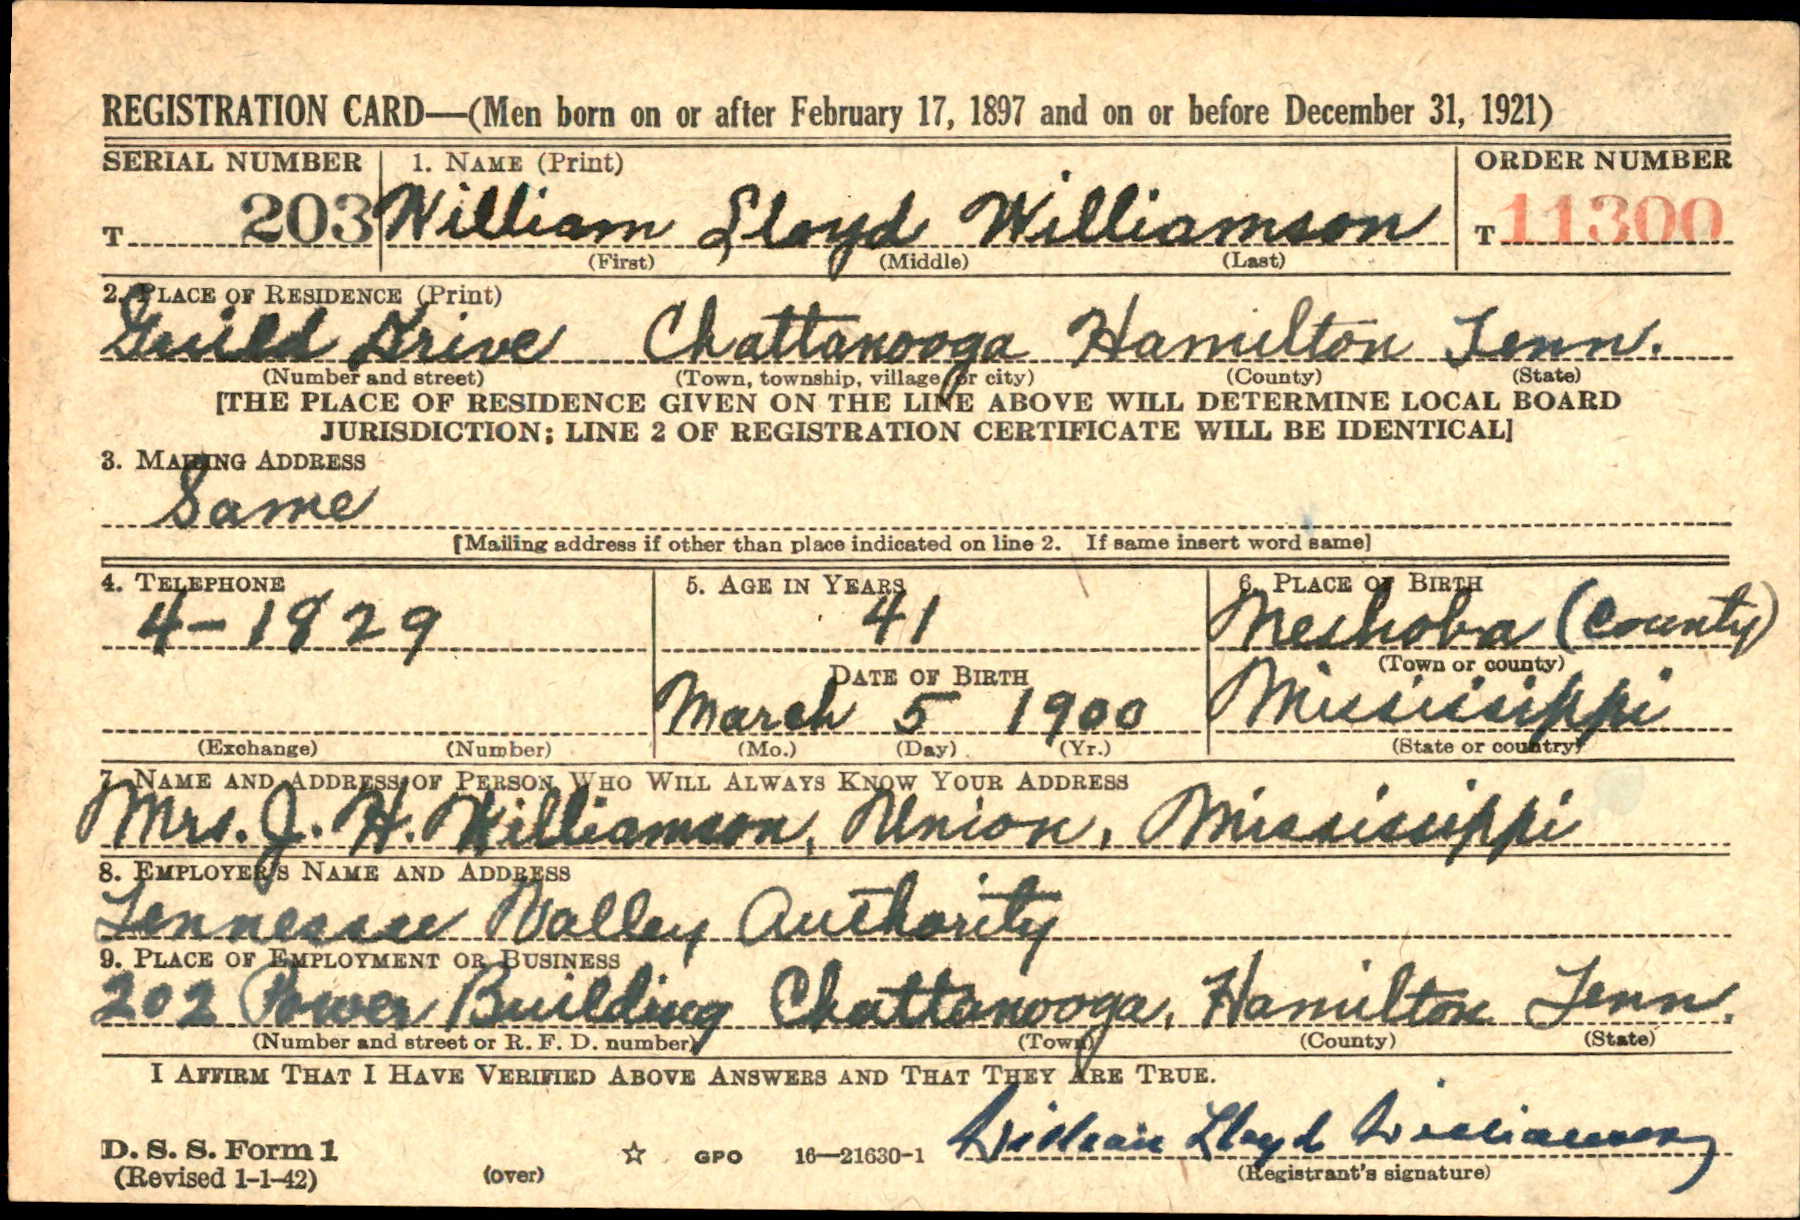 REGISTRATION CARD—(Men born on or after February 17, 1897 and on or before December 31, 1921)
SERIAL NUMBER 1. NAME (Print) ORDER NUMBER
T 203 William Lloyd Williamson T 11300
(First) (Middle) (Last)
2. PLACE OF RESIDENCE (Print)
Guild Drive Chattanooga Hamilton Tenn.
(Number and street) (Town, township, village, or city) (County) (State)
[THE PLACE OF RESIDENCE GIVEN ON THE LINE ABOVE WILL DETERMINE LOCAL BOARD
JURISDICTION; LINE 2 OF REGISTRATION CERTIFICATE WILL BE IDENTICAL]
3. MAILING ADDRESS
Same
[Mailing address if other than place indicated on line 2. If same insert word same]
4. TELEPHONE 5. AGE IN YEARS 6. PLACE OF BIRTH
4-1829 41 Neshoba (County)
(Town or county)
DATE OF BIRTH
March 5 1900 Mississippi
(Exchange) (Number) (Mo.) (Day) (Yr.) (State or country)
7. NAME AND ADDRESS OF PERSON WHO WILL ALWAYS KNOW YOUR ADDRESS
Mrs. J. H. Williamson, Union, Mississippi
8. EMPLOYER'S NAME AND ADDRESS
Tennessee Valley Authority
9. PLACE OF EMPLOYMENT OR BUSINESS
202 Power Building Chattanooga, Hamilton Tenn.
(Number and street or R. F. D. number) (Town) (County) (State)
I AFFIRM THAT I HAVE VERIFIED ABOVE ANSWERS AND THAT THEY ARE TRUE.
William Lloyd Williamson
D. S. S. Form 1 GPO 16—21630-1
(Revised 1-1-42) (over) (Registrant's signature)